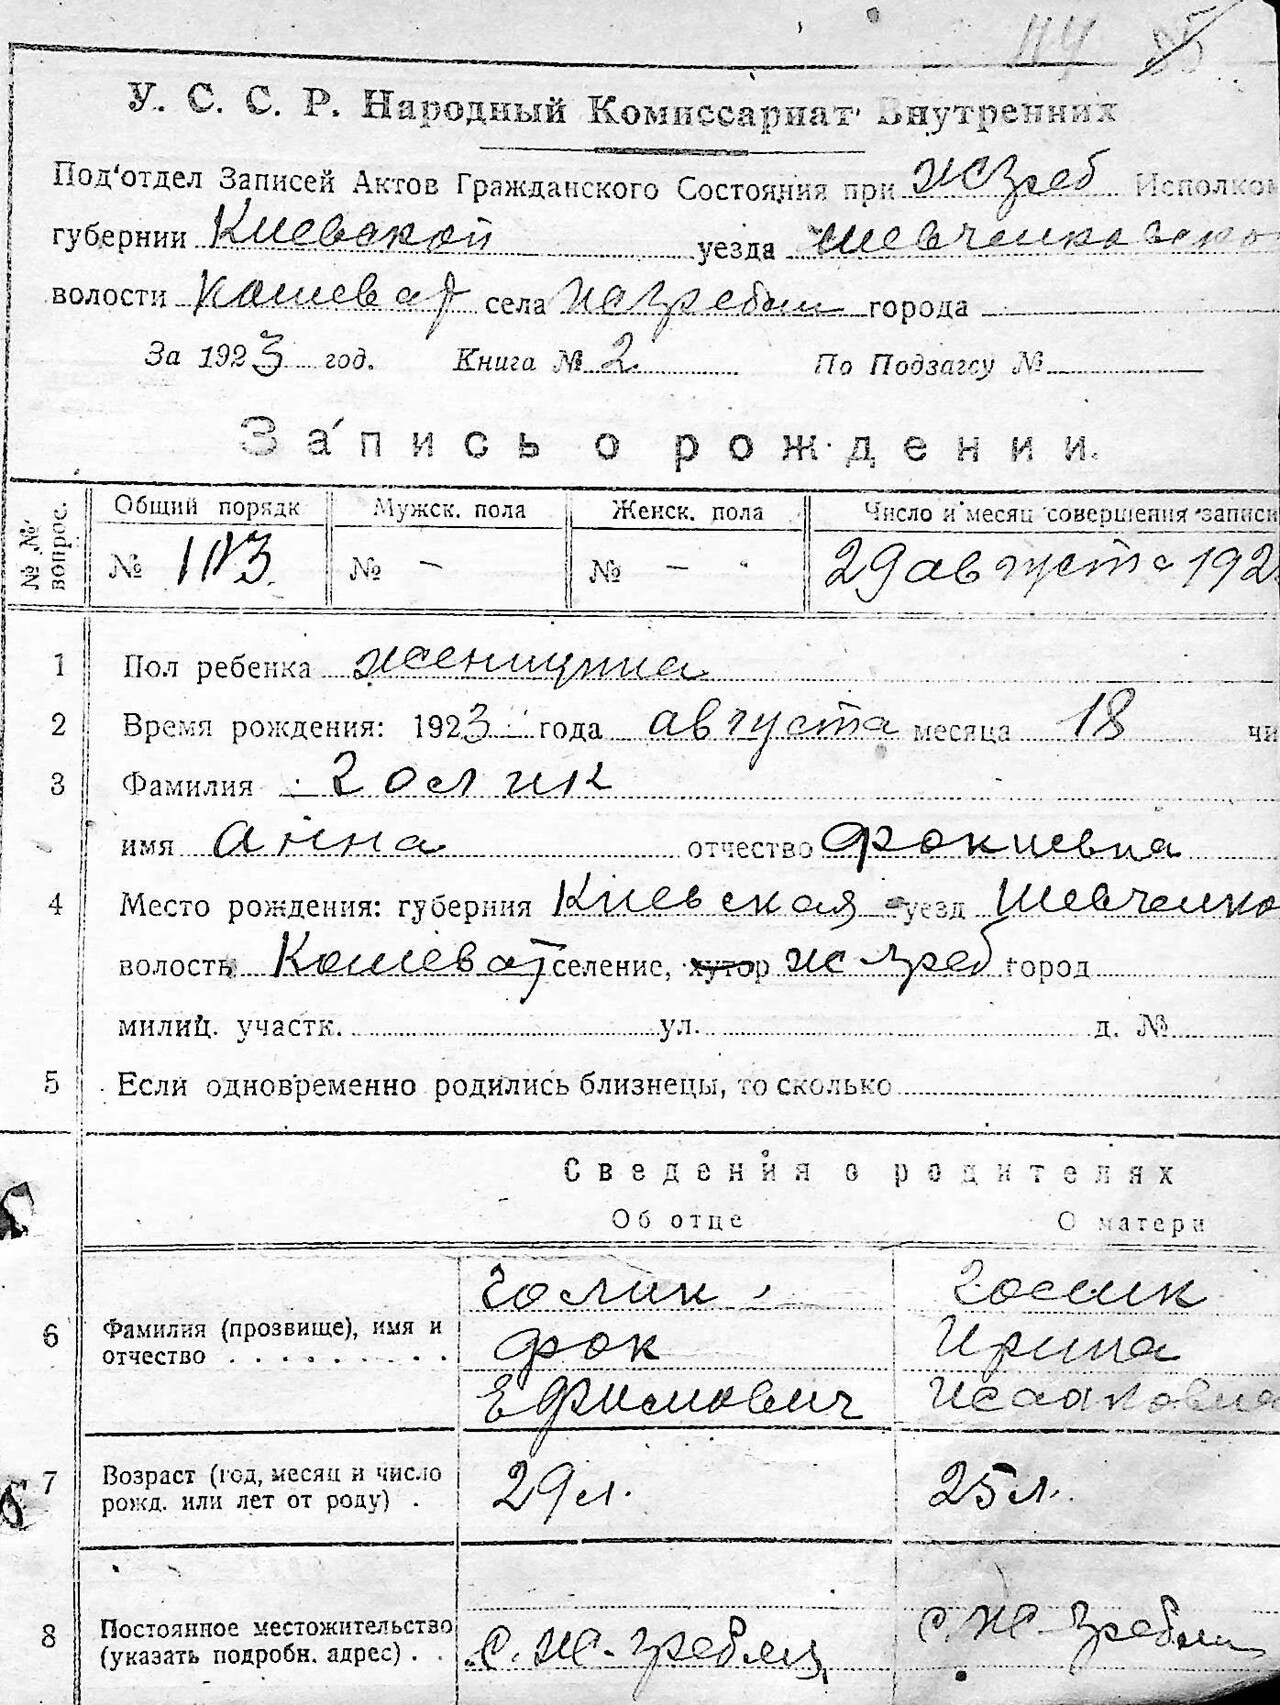 114 85
У. С. С. Р. Народный Комиссариат Внутренних
Под'отдел Записей Актов Гражданского Состояния при Ж Греб Исполком
губернии Киевской уезда Шевченковско
волости Кошеват села Ж Гребли города
За 1923 год. Книга № 2. По Подзагсу №
Запись о рождении.
№№ вопрос. Общий порядк Мужск. пола Женск. пола Число и месяц совершения записи
№ 103. № – № – 29 августа 192
1 Пол ребенка женщина
2 Время рождения: 1923 года августа месяца 18 чи
3 Фамилия Голик
имя Анна отчество Фокиевна
4 Место рождения: губерния Киевская уезд Шевченко
волость Кошеват селение, хутор Ж Греб город
милиц. участк. ул. д. №
5 Если одновременно родились близнецы, то сколько
Сведения о родителях
Об отце О матери
Голик Голик
6 Фамилия (прозвище), имя и отчество Фок Ирина
Ефимович Исааковна
7 Возраст (год, месяц и число рожд. или лет от роду) 29 л. 25 л.
8 Постоянное местожительство (указать подробн. адрес) с. Ж-Гребли с. Ж-Гребли